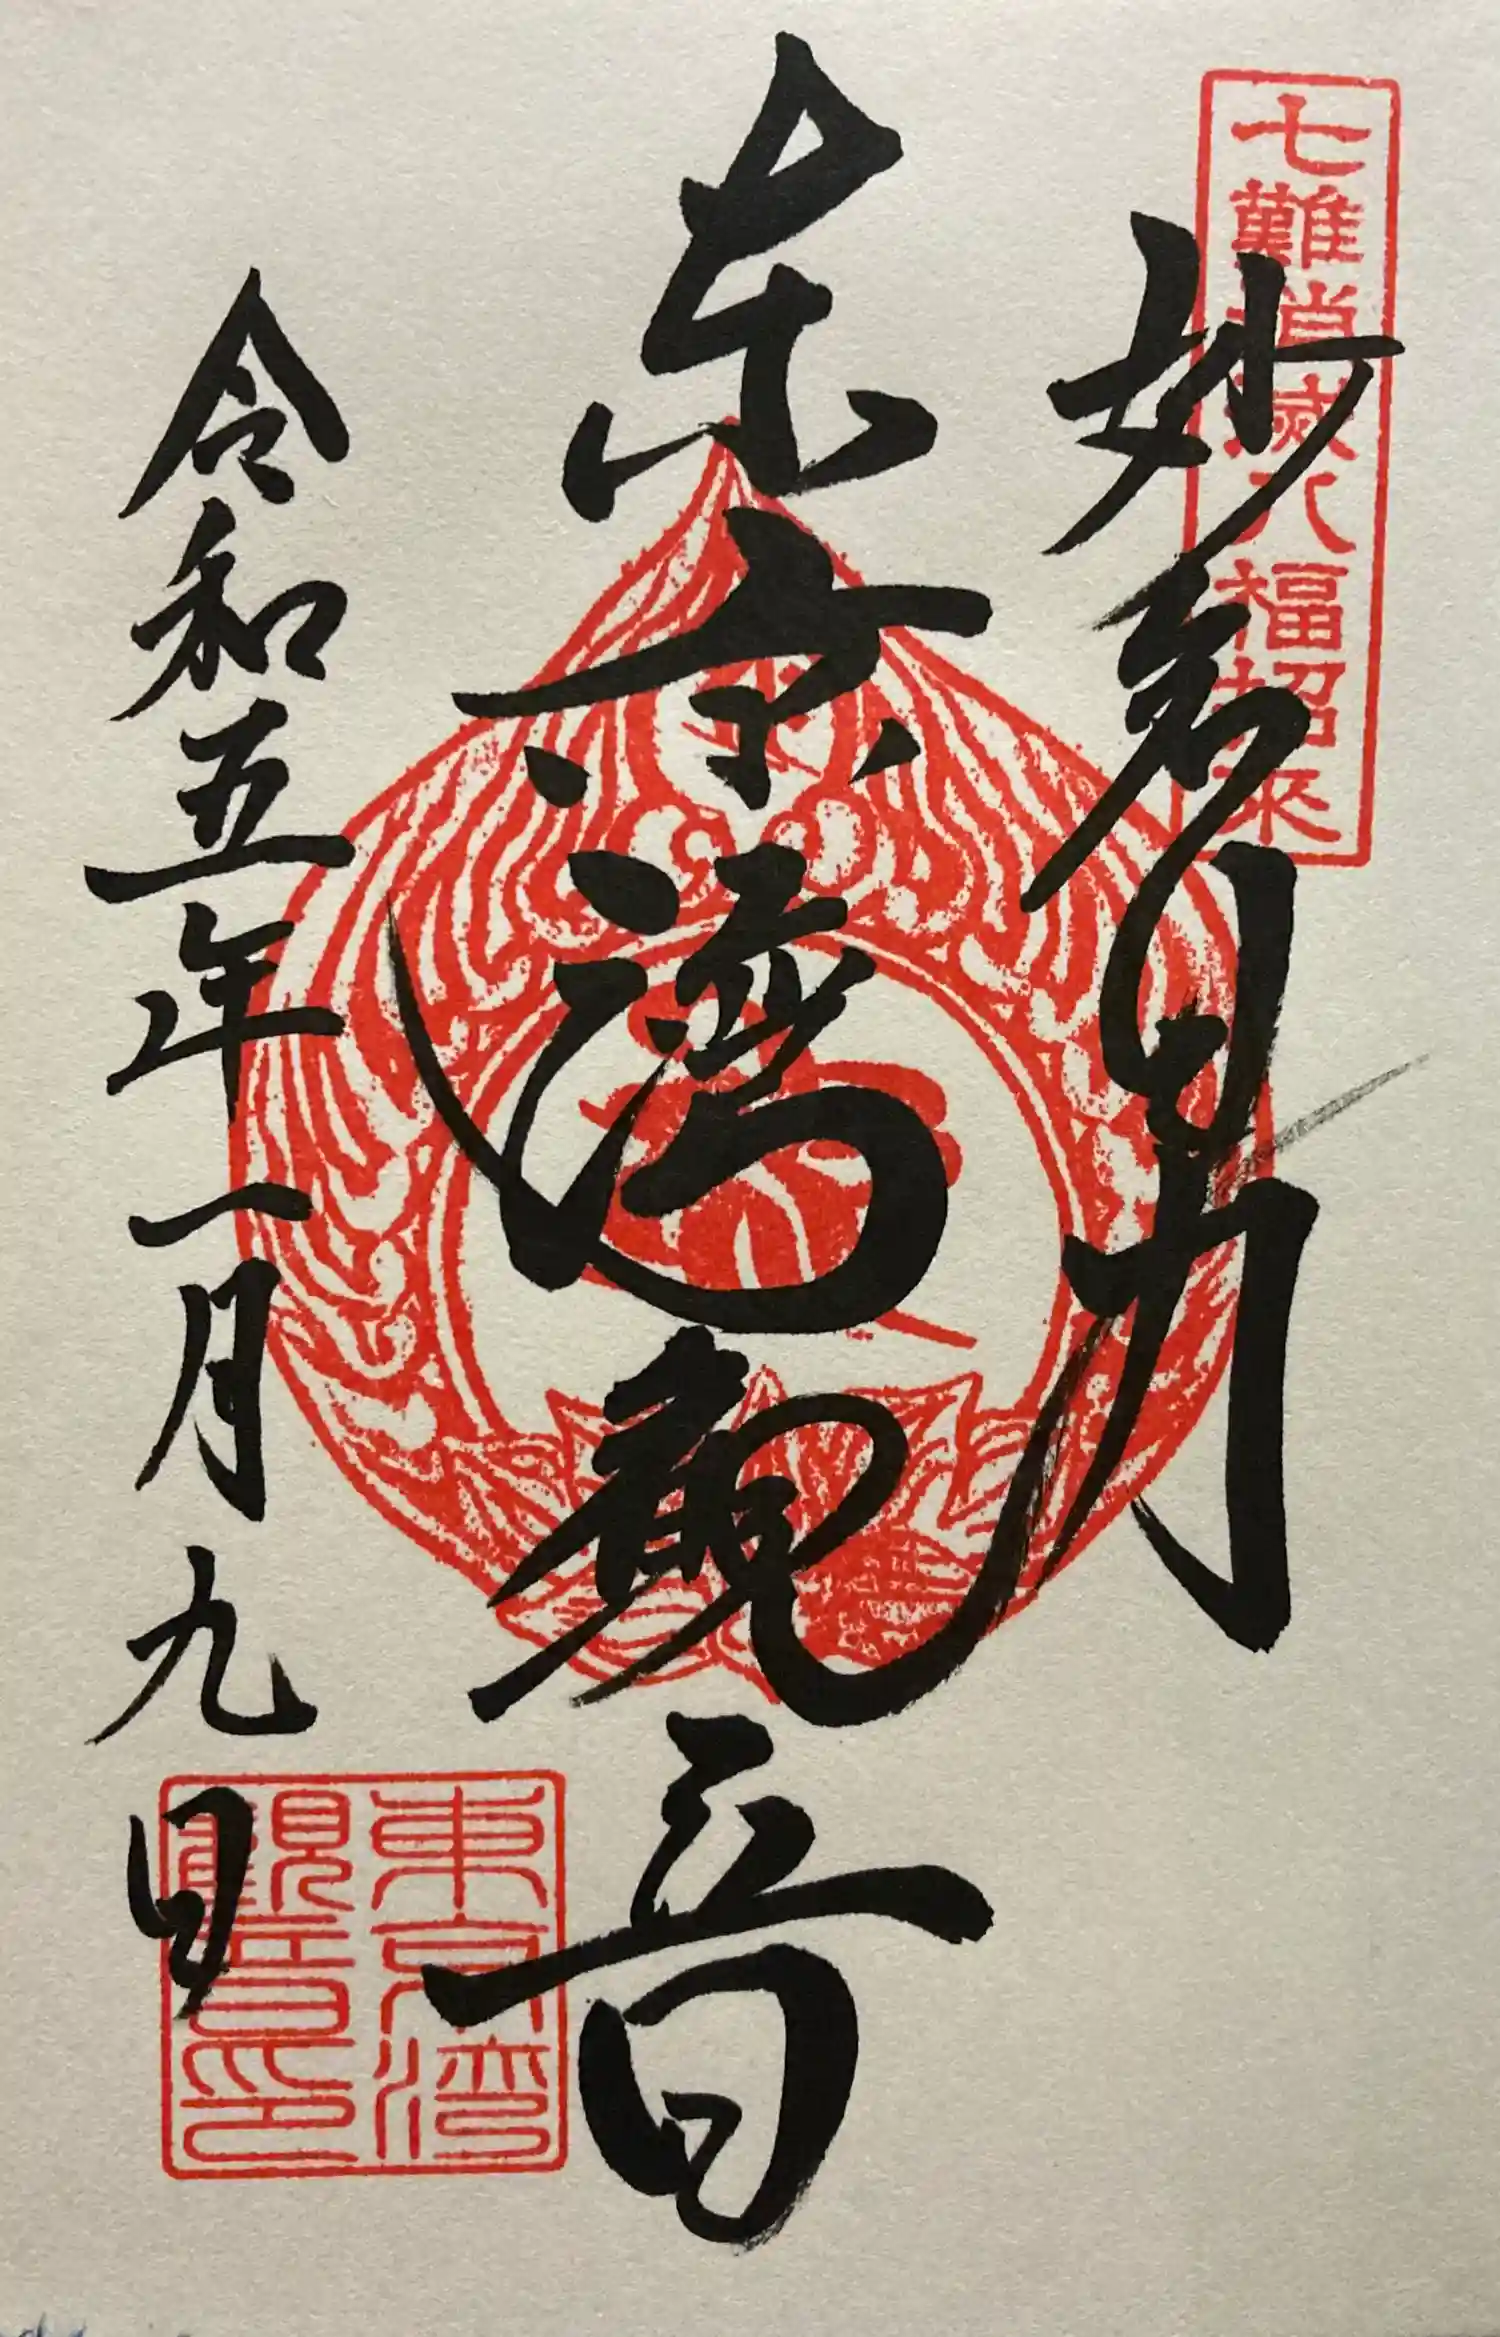 七難消滅八福招来
妙智力
东京湾観音
令和五年一月九日
東京湾
観音印